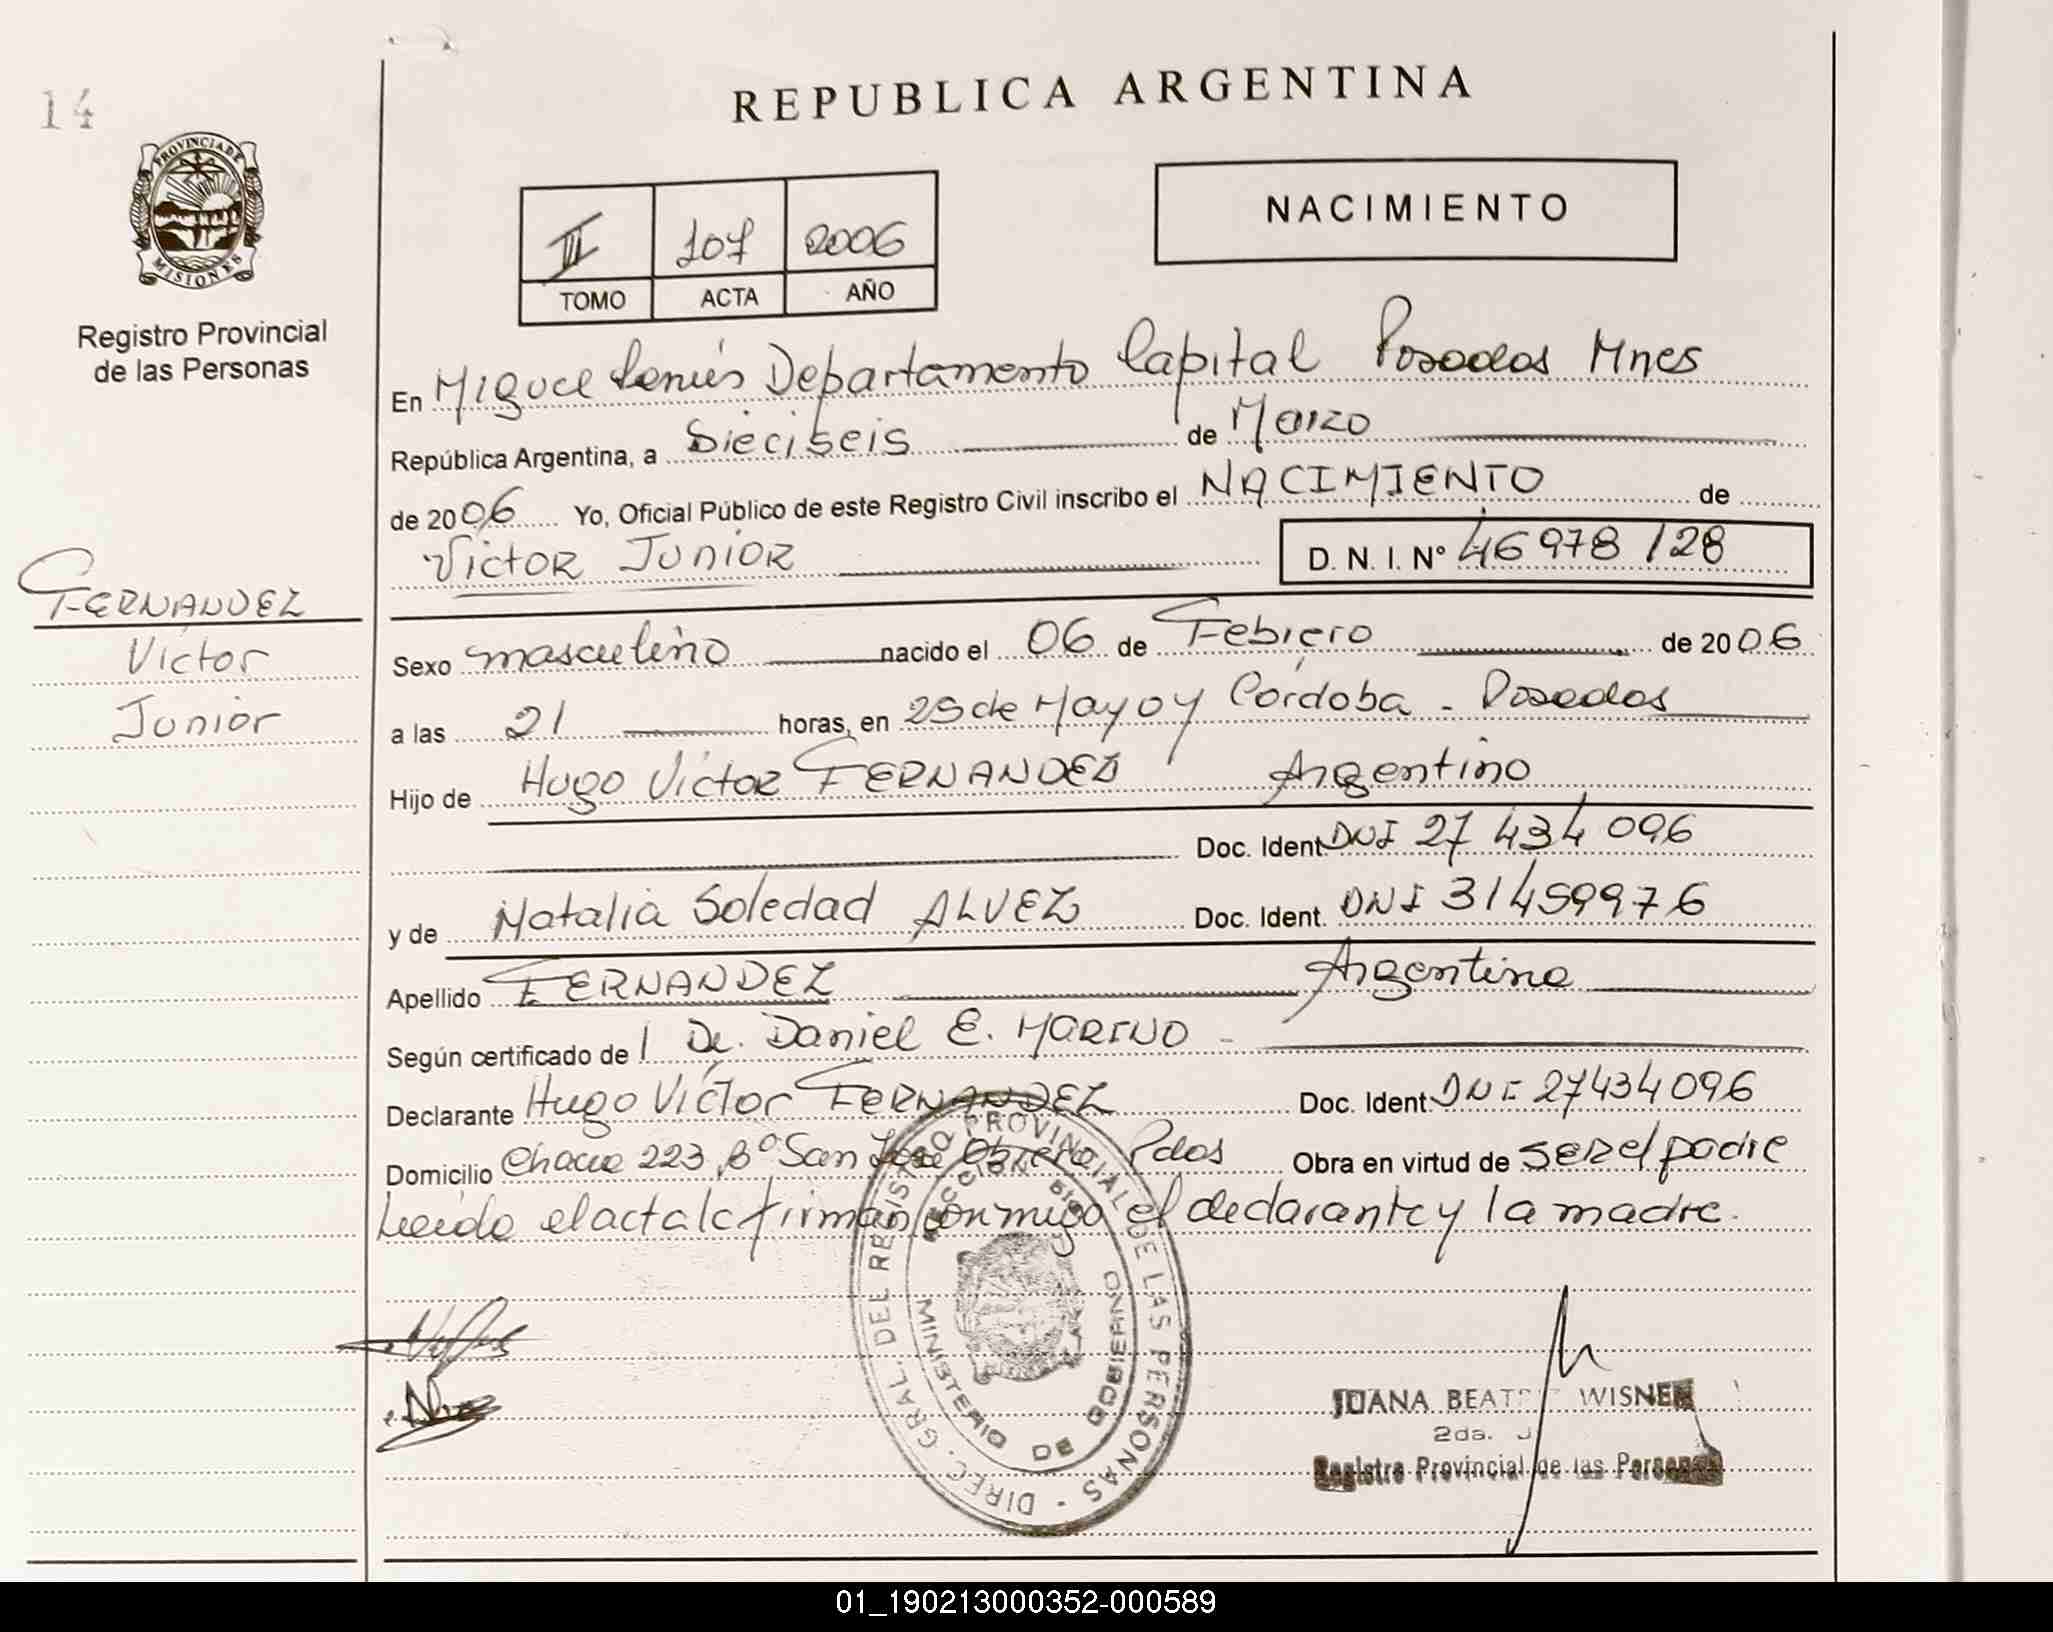 14
REPUBLICA ARGENTINA
PROVINCIA DE
MISIONES
Registro Provincial
de las Personas
II 107 2006
TOMO ACTA AÑO
NACIMIENTO
En Miguel Lanús Departamento Capital Posadas Mnes
República Argentina, a Dieciseis de Marzo
de 2006 Yo, Oficial Público de este Registro Civil inscribo el NACIMIENTO de
Victor Junior D. N. I. Nº 46978128
FERNANDEZ
Victor
Junior
Sexo masculino nacido el 06 de Febrero de 2006
a las 21 horas, en 25 de Mayo y Córdoba - Posadas
Hijo de Hugo Victor FERNANDEZ Argentino
Doc. Ident. DNI 27 434 096
y de Natalia Soledad ALVEZ Doc. Ident. DNI 31459976
Apellido FERNANDEZ Argentina
Según certificado de l Dr. Daniel E. MARINO -
Declarante Hugo Victor FERNANDEZ Doc. Ident. DNI 27434096
Domicilio 223 Bº San José Obrero Pdas Obra en virtud de ser el padre
Leida el acta la firman conmigo el declarante y la madre.
DIREC. GRAL. DEL REGISTRO PROVINCIAL DE LAS PERSONAS -
MINISTERIO DE GOBIERNO
JUANA BEATRIZ WISNER
2da. J
Registro Provincial de las Personas
01_190213000352-000589